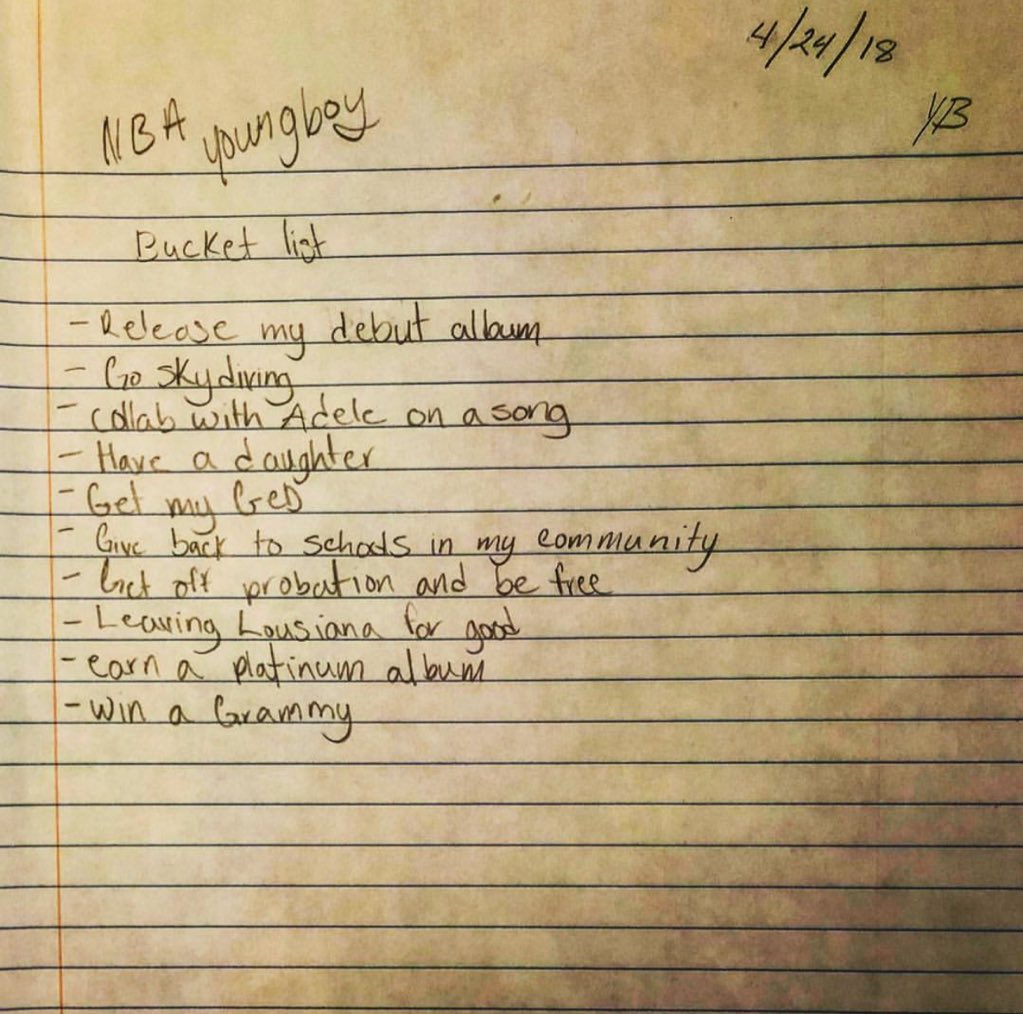 4/24/18
NBA youngboy
YB
Bucket list
- Release my debut album
- Go skydiving
- collab with Adele on a song
- Have a daughter
- Get my GeD
- Give back to schools in my community
- Get off probation and be free
- Leaving Lousiana for good
- earn a platinum album
- win a Grammy